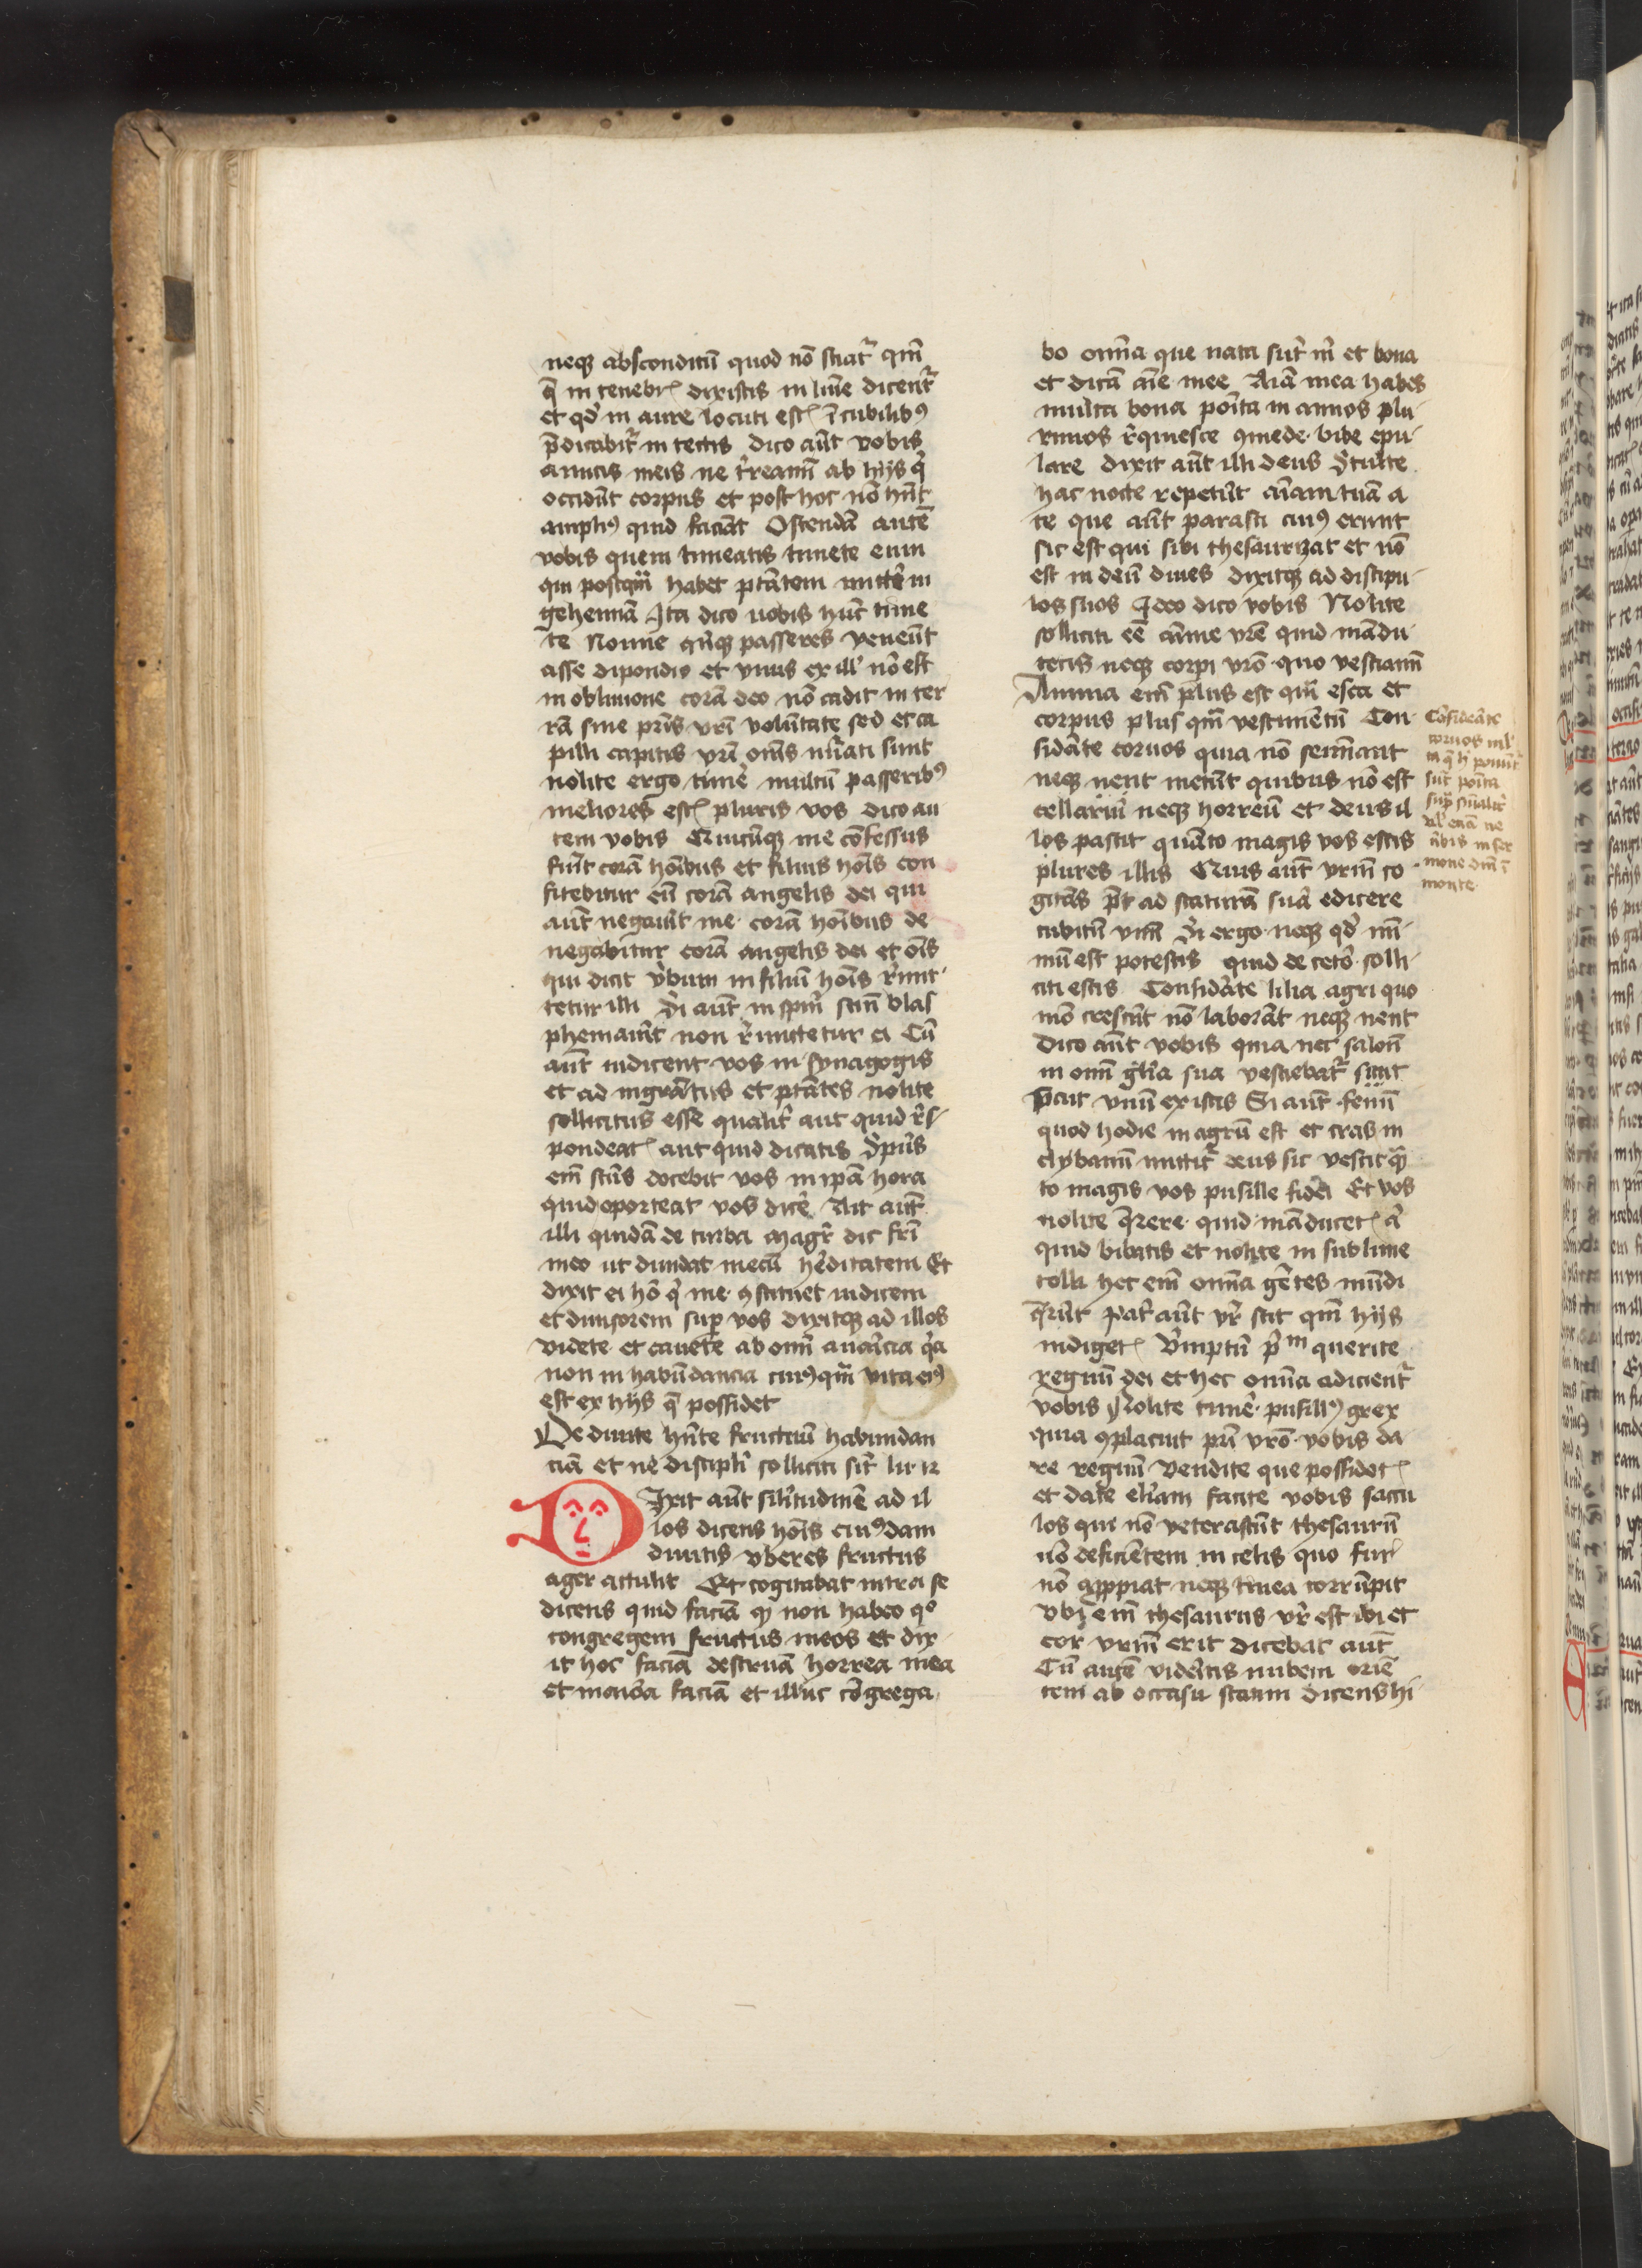 neqꝫ absconditū quod nō sciat᷑ qm̄
q̄ in tenebrꝭ dixistis in lūīe dicent᷑
et qd̓ in aure locuti estꝭ ī cubilibꝰ
p̄dicabit᷑ in tectis dico aūt vobis
amicis meis ne t̓reamī ab hijs q̓
occidūt corpus et post hoc nō hn̄t
ampliꝰ quid faciāt Ostendā autē
vobis quem timeatis timete eum
qui postqm̄ habet ptātem mitte᷑ in
gehennā Ita dico uobis hūc time
te Nonne qn̄qꝫ passeres veneūt
asse dipondio et vnus ex ill' nō est
in obliuione corā deo nō cadit in ter
rā sine pr̄is vr̄i volūtate sed et ca
pilli capitis vr̄i oēs nūati sunt
nolite ergo timē multū passeribꝰ
meliores estꝭ pluris vos dico au
tem vobis Quicūqꝫ me cōfessus
fūit corā hoībus et filius hoīs con
fitebitur eū corā angelis dei qui
aūt negaūit me corā hoībus de
negabitur corā angelis dei et oīs
qui dicit v̓bum in filiū hoīs r̓mit
tetur illi Ei aūt in spm̄ sctm̄ blas
phemaūit non r̓mittetur ei Cū
aūt inducent vos in synagogis
et ad mg̓ratus et ptātes nolite
sollicitus esse qualit᷑ aut quid r̓s
pondeatꝭ aut quid dicatis Sp̄us
em̄ sctūs docebit vos in ip̄a hora
quid oporteat vos dicē Ait aūt
illi quidā de turba magr̄ dic frī
meo ut diuidat mecū he᷑ditatem Et
dixit ei hō q̓ me ꝯstituet iudicem
et diuisorem suꝑ vos dixitqꝫ ad illos
videte et cauete ab om̄i auaricia q̓a
non in habūdancia cuiꝰqm̄ vita eiꝰ
est ex hijs q̄ possidet
De diuite hn̄te fructuū habundan
ciā et ne discipli᷑ solliciti sit᷑ lu 12
Dixit aūt silitudinē ad il
los dicens hoīs cuiꝰdam
diuitis vberes fructus
ager attulit Et cogitabat intra se
dicens quid faciā qꝫ non habeo qͦ
congregem fructus meos et dix
it hoc faciā destruā horrea mea
et maiora faciā et illuc cōgrega
bo om̄ia que nata sūt m̄ et bona
et dicā aīe mee Aīa mea habes
multa bona poīta in annos plu
rimos r̓quiesce ꝯmede bibe epu
lare dixit aūt illi deus Stulte
hac nocte repetūt aīam tuā a
te que aūt parasti cuiꝰ erunt
sic est qui sibi thesaurizat et nō
est in deū diues dixitqꝫ ad discipu
los suos Ideo dico vobis Nolite
solliciti eē aīme vrē quid mādu
cetis neqꝫ corpi vrō quo vestiamī
Anima em̄ plus est qm̄ esca et
corpus plus qm̄ vestimētū Con
sidāte coruos quia nō semināt
neqꝫ nent metūt quibus nō est
cellariū neqꝫ horreū et deus il
los pascit quāto magis vos estis
plures illis Quis aūt vrm̄ co
gitās pt̄ ad staturā suā edicere
cubitū vnū Si ergo neqꝫ qd̓ mi
mū est potestis quid de cetō solli
citi estis Considāte lilia agri quo
mō crescūt nō laborāt neqꝫ nent
Dico aūt vobis quia nec salom̄
in om̄i gl̄ia sua vestiebat᷑ sicut
sicut vnū ex istis Si aūt fenū
quod hodie in agrū est et cras in
clybanū mittit᷑ deus sic vestit quā
to magis vos pusille fidei Et vos
nolite q̄rere quid māducetꝭ aut
quid bibatis et nolite in sublime
tolli hec em̄ om̄ia gētes mūdi
q̄rūt pat᷑ aūt vr̄ scit qm̄ hijs
indigetꝭ Verūptn̄ p̓m querite
regnū dei et hec om̄ia adicient᷑
vobis Nolite timē pusillꝰ grex
quia ꝯplacuit pr̄i vrō vobis da
re regnū Vendite que possidetꝭ
et date eli̓am facite vobis saccu
los qui nō veterascūt thesaurū
nō deficiētem in celis quo fur
nō app̄piat neqꝫ tinea corrūpit
vbi em̄ thesaurus vr̄ est ibi et
cor vrm̄ erit dicebat aūt
Cū autē videritis nubem oriē
tem ab occasu statim dicens hi
Cōsideāte
coruos
ponūt᷑
sūt poīta
sup̄
etiā
nobis in ser
mone dn̄i ī
monte